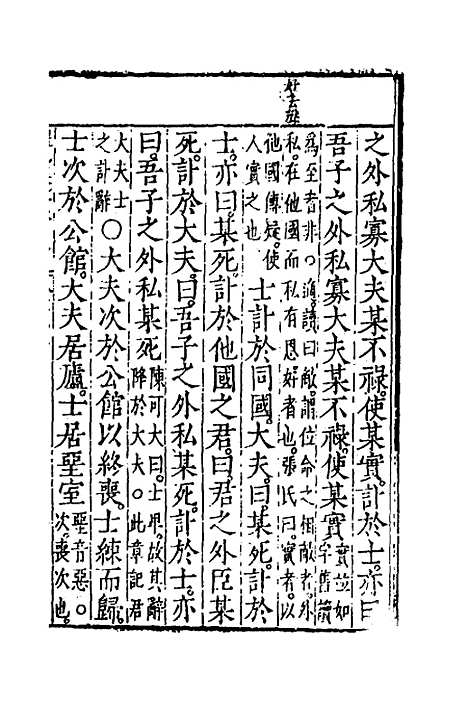 好去聲
之外私寡大夫某不祿使某實訃於士亦曰
吾子之外私寡大夫某不祿使某實實並如字舊讀
爲至者非○適讀曰敵謂位命之相敵者外
私在他國而私有恩好者也張氏曰實者以
他國傳疑使人實之也士訃於同國大夫曰某死訃於
士亦曰某死訃於他國之君曰君之外臣某
死訃於大夫曰吾子之外私某死訃於士亦
曰吾子之外私某死陳可大曰士卑故其辭降於大夫○此章記君
大夫士之訃辭○大夫次於公館以終喪士練而歸
士次於公館大夫居廬士居堊室堊音惡○次喪次也